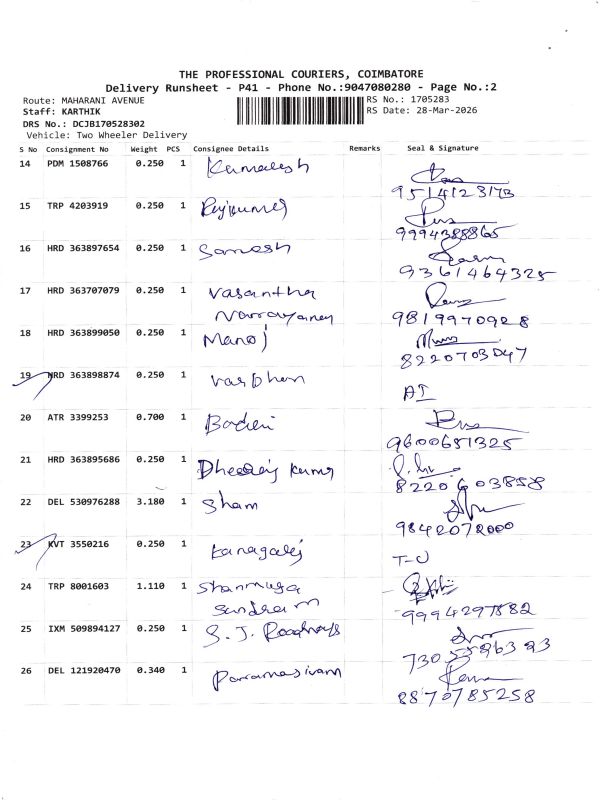 THE PROFESSIONAL COURIERS, COIMBATORE
Delivery Runsheet - P41 - Phone No.:9047080280 - Page No.:2
Route: MAHARANI AVENUE RS No.: 1705283
Staff: KARTHIK RS Date: 28-Mar-2026
DRS No.: DCJB170528302
Vehicle: Two Wheeler Delivery
S No Consignment No Weight PCS Consignee Details Remarks Seal & Signature
14 PDM 1508766 0.250 1 Kamalesh
95141231
15 TRP 4203919 0.250 1 Rajkumar
9994388865
16 HRD 363897654 0.250 1
9361464325
17 HRD 363707079 0.250 1 Vasantha
9819970928
18 HRD 363899050 0.250 1 Manoj
8220703047
19 HRD 363898874 0.250 1 Vardhan
20 ATR 3399253 0.700 1
9600651325
21 HRD 363895686 0.250 1 Dheeraj Kumar
8220603858
22 DEL 530976288 3.180 1 Sham
9842072000
23 KVT 3550216 0.250 1 Kanagaraj
24 TRP 8001603 1.110 1 Shanmuga
Sundaram
9994297882
25 IXM 509894127 0.250 1 S. J. Roadways
26 DEL 121920470 0.340 1 Paramasivam
8870785258